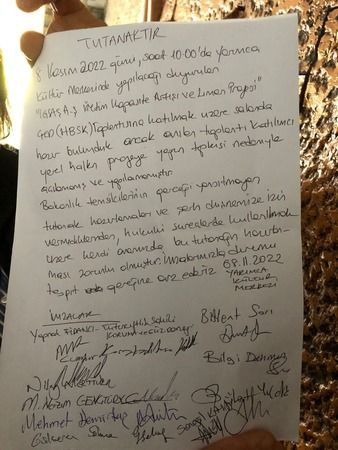 TUTANAKTIR
8 Kasım 2022 günü, saat 10:00'de Yarımca
Kültür Merkezinde yapılacağı duyurulan
"İGSAŞ A.Ş Üretim Kapasite Artışı ve Liman Projesi"
ÇED (HBSK) Toplantısına katılmak üzere salonda
hazır bulunduk ancak anılan toplantı katılımcı
yerel halkın projeye yoğun tepkisi nedeniyle
açılamamış ve yapılamamıştır.
Bakanlık temsilcilerinin gerçeği yansıtmayan
tutanak hazırlamaları ve şerh düşmemize izin
vermediklerinden, hukuki süreçlerde kullanılmak
üzere kendi aramızda bu tutanağın hazırlan-
ması zorunlu olmuştur. İmzalarımızla durumu
tespit gereğine arz ederiz 08.11.2022
YARIMCA
KÜLTÜR
MERKEZİ
İMZACILAR
Bülent Sarı
Bilgi Dehmez
M. Nazım GENÇTÜRK
Mehmet Demirtaş